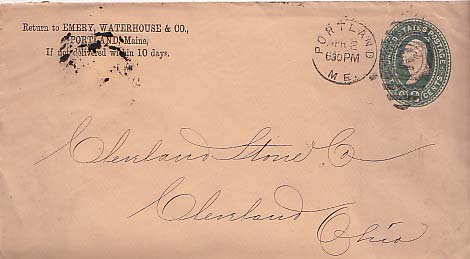 Return to EMERY, WATERHOUSE & CO.,
PORTLAND, Maine,
If not delivered within 10 days.
PORTLAND
630PM
ME.
UNITED STATES POSTAGE
CENTS
Cleveland Stone Co
Cleveland
Ohio